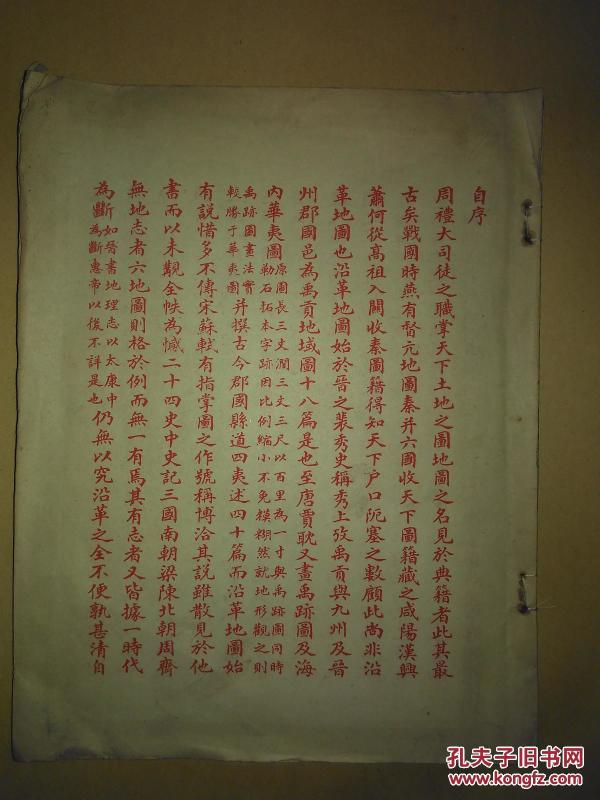 自序
周禮大司徒之職掌天下土地之圖地圖之名見於典籍者此其最
古矣戰國時燕有督亢地圖秦并六國收天下圖籍藏之咸陽漢興
蕭何從高祖入關收秦圖籍得知天下户口阨塞之數顧此尚非沿
革地圖也沿革地圖始於晉之裴秀史稱秀上攷禹貢與九州及晉
州郡國邑為禹貢地域圖十八篇是也至唐賈耽又畫禹跡圖及海
內華夷圖原圖長三丈濶三丈三尺以百里為一寸與禹跡圖同時
勒石拓本字跡因比例縮小不免模糊然就地形觀之則
禹跡圖畫法實
較勝于華夷圖并撰古今郡國縣道四夷述四十篇而沿革地圖始
有說惜多不傳宋蘇軾有指掌圖之作號稱博洽其說雖散見於他
書而以未覩全帙為憾二十四史中史記三國南朝梁陳北朝周齊
無地志者六地圖則格於例而無一有焉其有志者又皆據一時代
為斷如晉書地理志以太康中
為斷惠帝以後不詳是也仍無以究沿革之全不便孰甚清自
孔夫子旧书网
www.kongfz.com